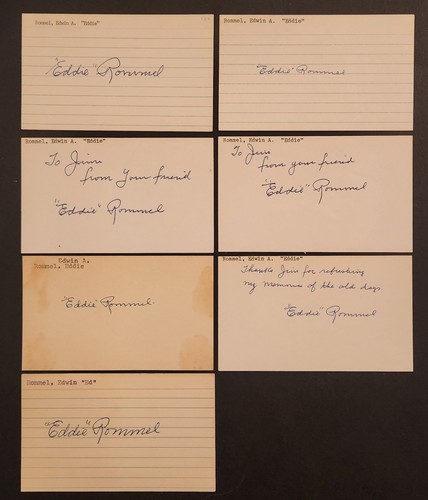 Rommel, Edwin A. "Eddie"
"Eddie" Rommel
Rommel, Edwin A. "Eddie"
"Eddie" Rommel
Rommel, Edwin A. "Eddie"
To Jim
from your friend
"Eddie" Rommel
Rommel, Edwin A. "Eddie"
To Jim
from your friend
"Eddie" Rommel
Edwin A.
Rommel, Eddie
"Eddie" Rommel
Rommel, Edwin A. "Eddie"
Thanks Jim for refreshing
my memories of the old days
"Eddie" Rommel
Rommel, Edwin "Ed"
"Eddie" Rommel